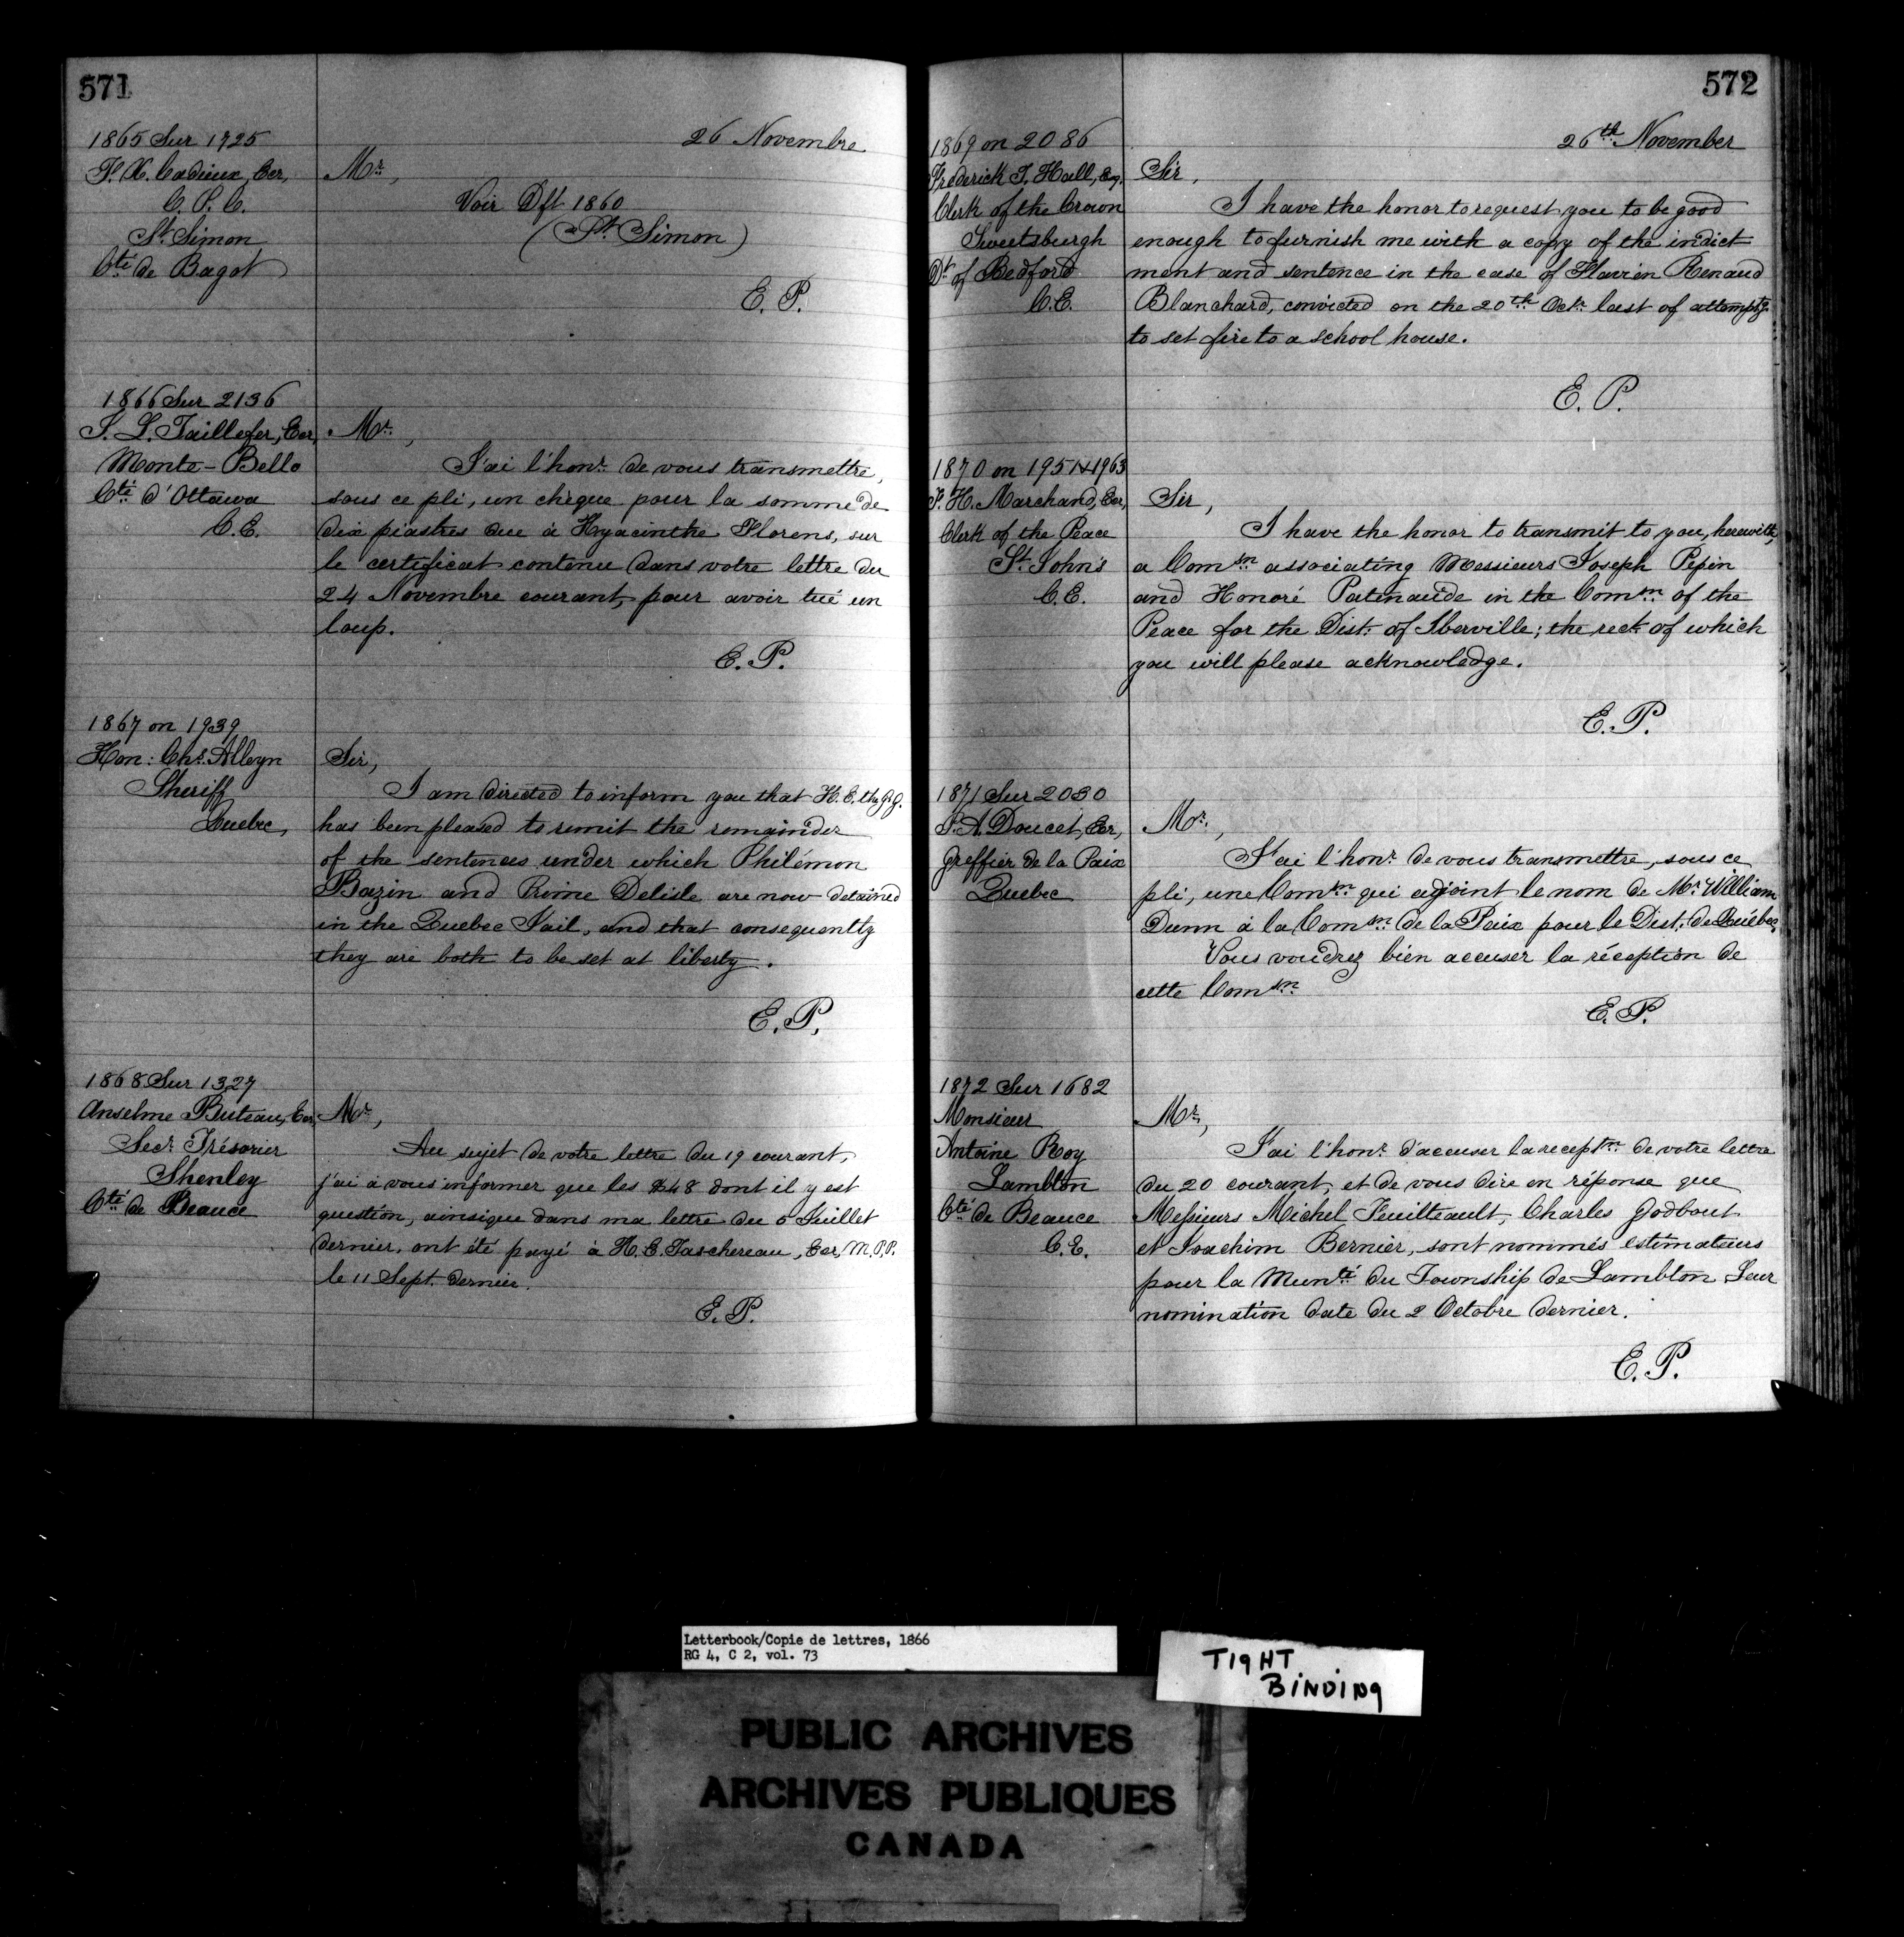 571
26 Novembre
1865 Sur 1725
F. X. Cadieux, Ecr,
C. P. C.
St. Simon
Cté de Bagot
Mr.,
Voir Dft 1860
(St. Simon)
E. P.
1866 Sur 2136
S. L. Taillefer, Ecr,
Monte-Bello
Cté d'Ottawa
C.E.
Mr.,
J'ai l'honr. de vous transmettre,
sous ce pli, un chèque pour la somme de
dix piastres due à Hyacinthe Florens, sur
le certificat contenu dans votre lettre du
24 Novembre courant, pour avoir tué un
loup.
E. P.
1867 on 1939
Hon: Chs. Alleyn
Sheriff
Quebec,
Sir,
I am directed to inform you that H. E. the G. G.
has been pleased to remit the remainder
of the sentences under which Philémon
Bazin and Rivine Delisle are now detained
in the Quebec Jail, and that consequently
they are both to be set at liberty.
E. P.
1868 Sur 1327
Anselme Buteau, Ecr,
Secr. Trésorier
Shenley
Cté de Beauce
Mr.,
Au sujet de votre lettre du 19 courant,
j'ai à vous informer que les $48 dont il y est
question, ainsique dans ma lettre du 5 Juillet
dernier, ont été payé à H. E. Taschereau, Ecr, M.P.P.
le 11 Sept. dernier.
E. P.
572
26th. November
1869 on 2086
Frederick T. Hall, Esq.
Clerk of the Crown
Sweetsburgh
Dt. of Bedford
C.E.
Sir,
I have the honor to request you to be good
enough to furnish me with a copy of the indict
ment and sentence in the case of Flavien Renaud
Blanchard, convicted on the 20th. Octr. last of attemptg.
to set fire to a school house.
E. P.
1870 on 1951/1963
P. H. Marchand, Ecr,
Clerk of the Peace
St. John's
C.E.
Sir,
I have the honor to transmit to you, herewith,
a Comsn. associating Messieurs Joseph Pepin
and Honoré Patenaude in the Comsn. of the
Peace for the Dist. of Iberville; the rect. of which
you will please acknowledge.
E. P.
1871 Sur 2030
P. A. Doucet, Ecr,
Greffier de la Paix
Quebec
Mr.,
J'ai l'honr. de vous transmettre, sous ce
pli, une Comsn. qui adjoint le nom de Mr. William
Dunn à la Comsn. de la Paix pour le Dist. de Québec.
Vous voudrez bien accuser la réception de
cette Comsn.
E. P.
1872 Sur 1682
Monsieur
Antoine Roy
Lambton
Cté de Beauce
C.E.
Mr.,
J'ai l'honr. d'accuser la receptn. de votre lettre
du 20 courant, et de vous dire en réponse que
Messieurs Michel Feuilteault, Charles Godbout
et Joachim Bernier, sont nommés estimateurs
pour la Munté. du Township de Lambton Leur
nomination date du 2 Octobre dernier.
E. P.
Letterbook/Copie de lettres, 1866
RG 4, C 2, vol. 73
TIGHT
BINDING
PUBLIC ARCHIVES
ARCHIVES PUBLIQUES
CANADA